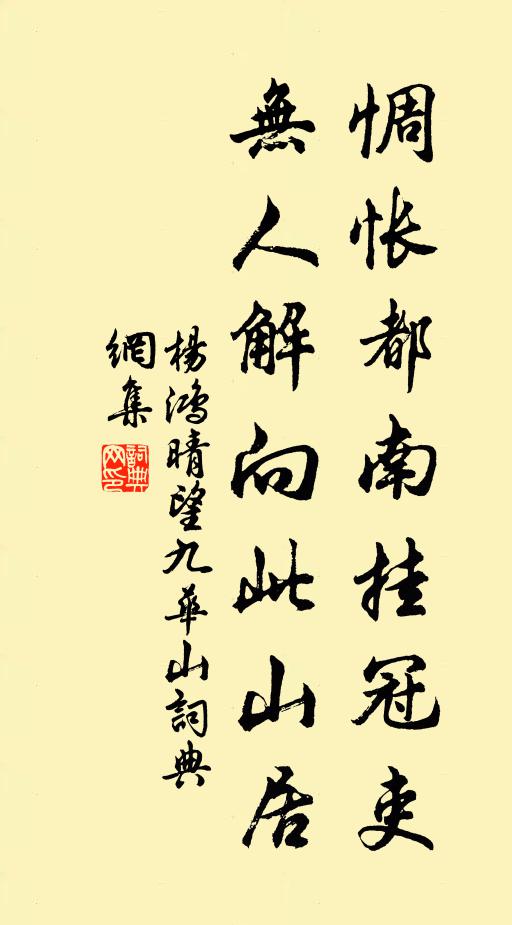 惆悵都南挂冠吏
無人解向此山居
楊鴻晴望九華山詞典
網集
詞典
网印